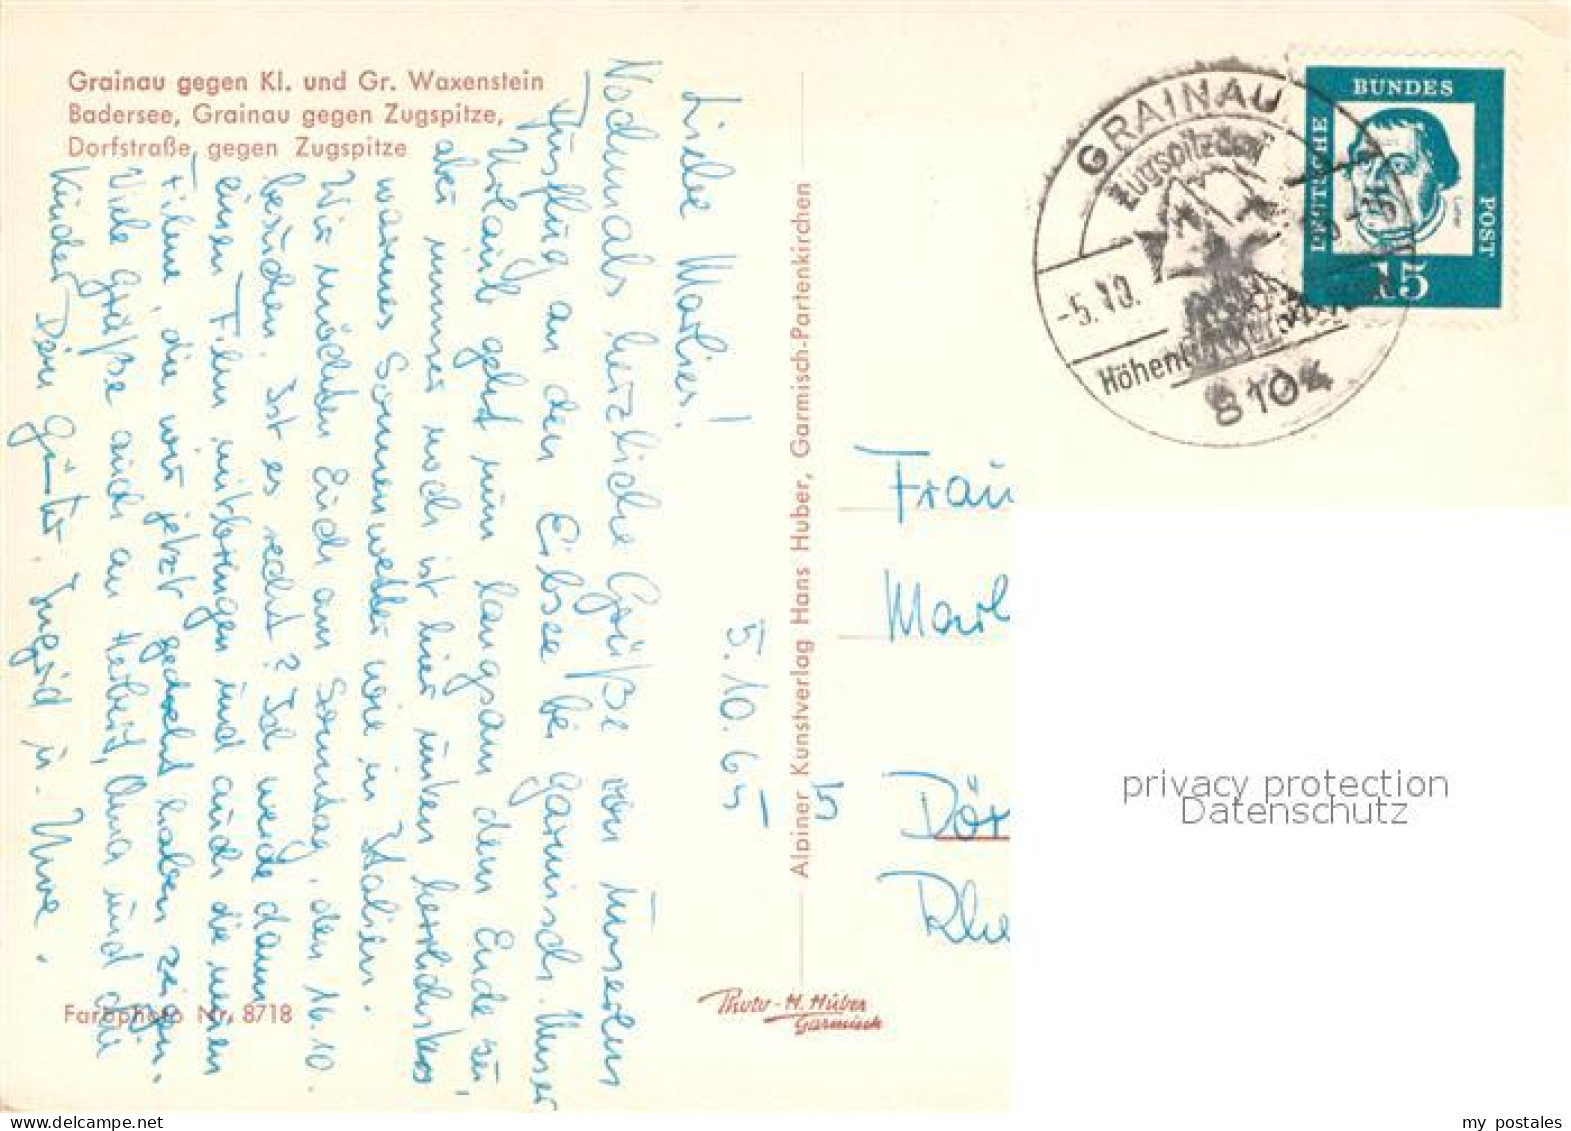 Grainau gegen Kl. und Gr. Waxenstein
Badersee, Grainau gegen Zugspitze,
Dorfstraße gegen Zugspitze
5.10.65
Liebe Marlies!
Nochmals herzliche Grüße von unserem
Ausflug an den Eibsee bei Garmisch. Unser
Urlaub geht nun langsam dem Ende zu,
aber immer noch ist hier unten herrlichstes
warmes Sonnenwetter wie in Italien.
Wir möchten Euch am Sonntag, den 16.10.
besuchen. Ist es recht? Ich werde dann
einen Film mitbringen und auch die neuen
Filme, die wir jetzt gedreht haben zeigen.
Viele Grüße auch an Herbert, Oma und die
Kinder Dein Günter, Ingrid u. Uwe.
Farbphoto Nr. 8718
Alpiner Kunstverlag Hans Huber, Garmisch-Partenkirchen
Photo-H. Huber
Garmisch
GRAINAU
Zugspitzdorf
-5.10.
8104
BUNDES
DEUTSCHE
POST
15
Frau
Marl
5
Dör
Rhe
privacy protection
Datenschutz
my postales